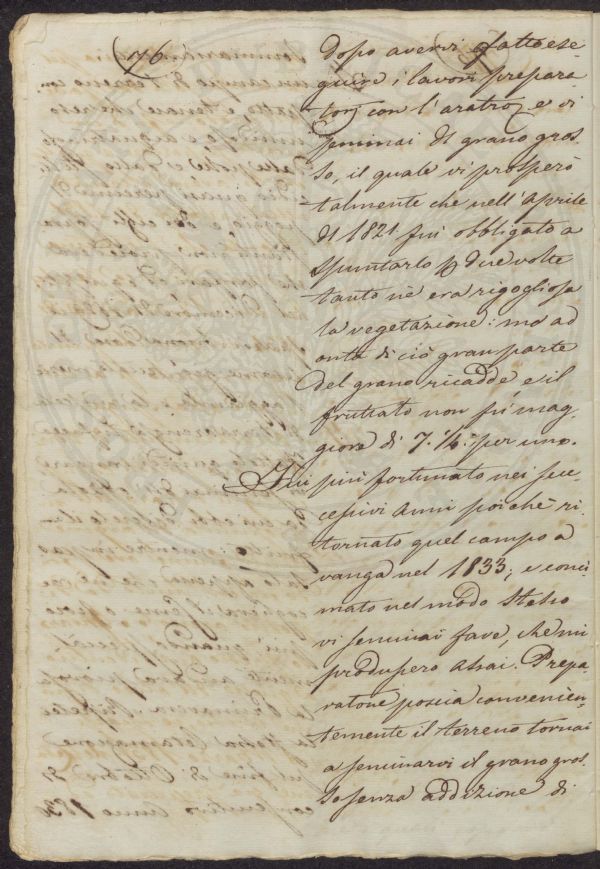 (76)
dopo avervi fatto ese-
guire i lavori prepara-
torj con l'aratro, e vi
seminai Il grano gros-
so, il quale vi prosperò
talmente che nell'Aprile
del 1821 fui obbligato a
spuntarlo due volte
tanto nè era rigogliosa
la vegetazione: ma ad
onta di ciò gran parte
del grano ricadde, e il
fruttato non fù mag-
giore di 7. 1/4. per uno.
Fui più fortunato nei suc-
cessivi anni poichè ri-
tornato quel campo a
vanga nel 1833; e conci-
mato nel modo stesso
vi seminai fave, che mi
produssero assai. Prepa-
ratone poscia convenien-
temente il terreno tornai
a seminarvi il grano gros-
so senza addizione di